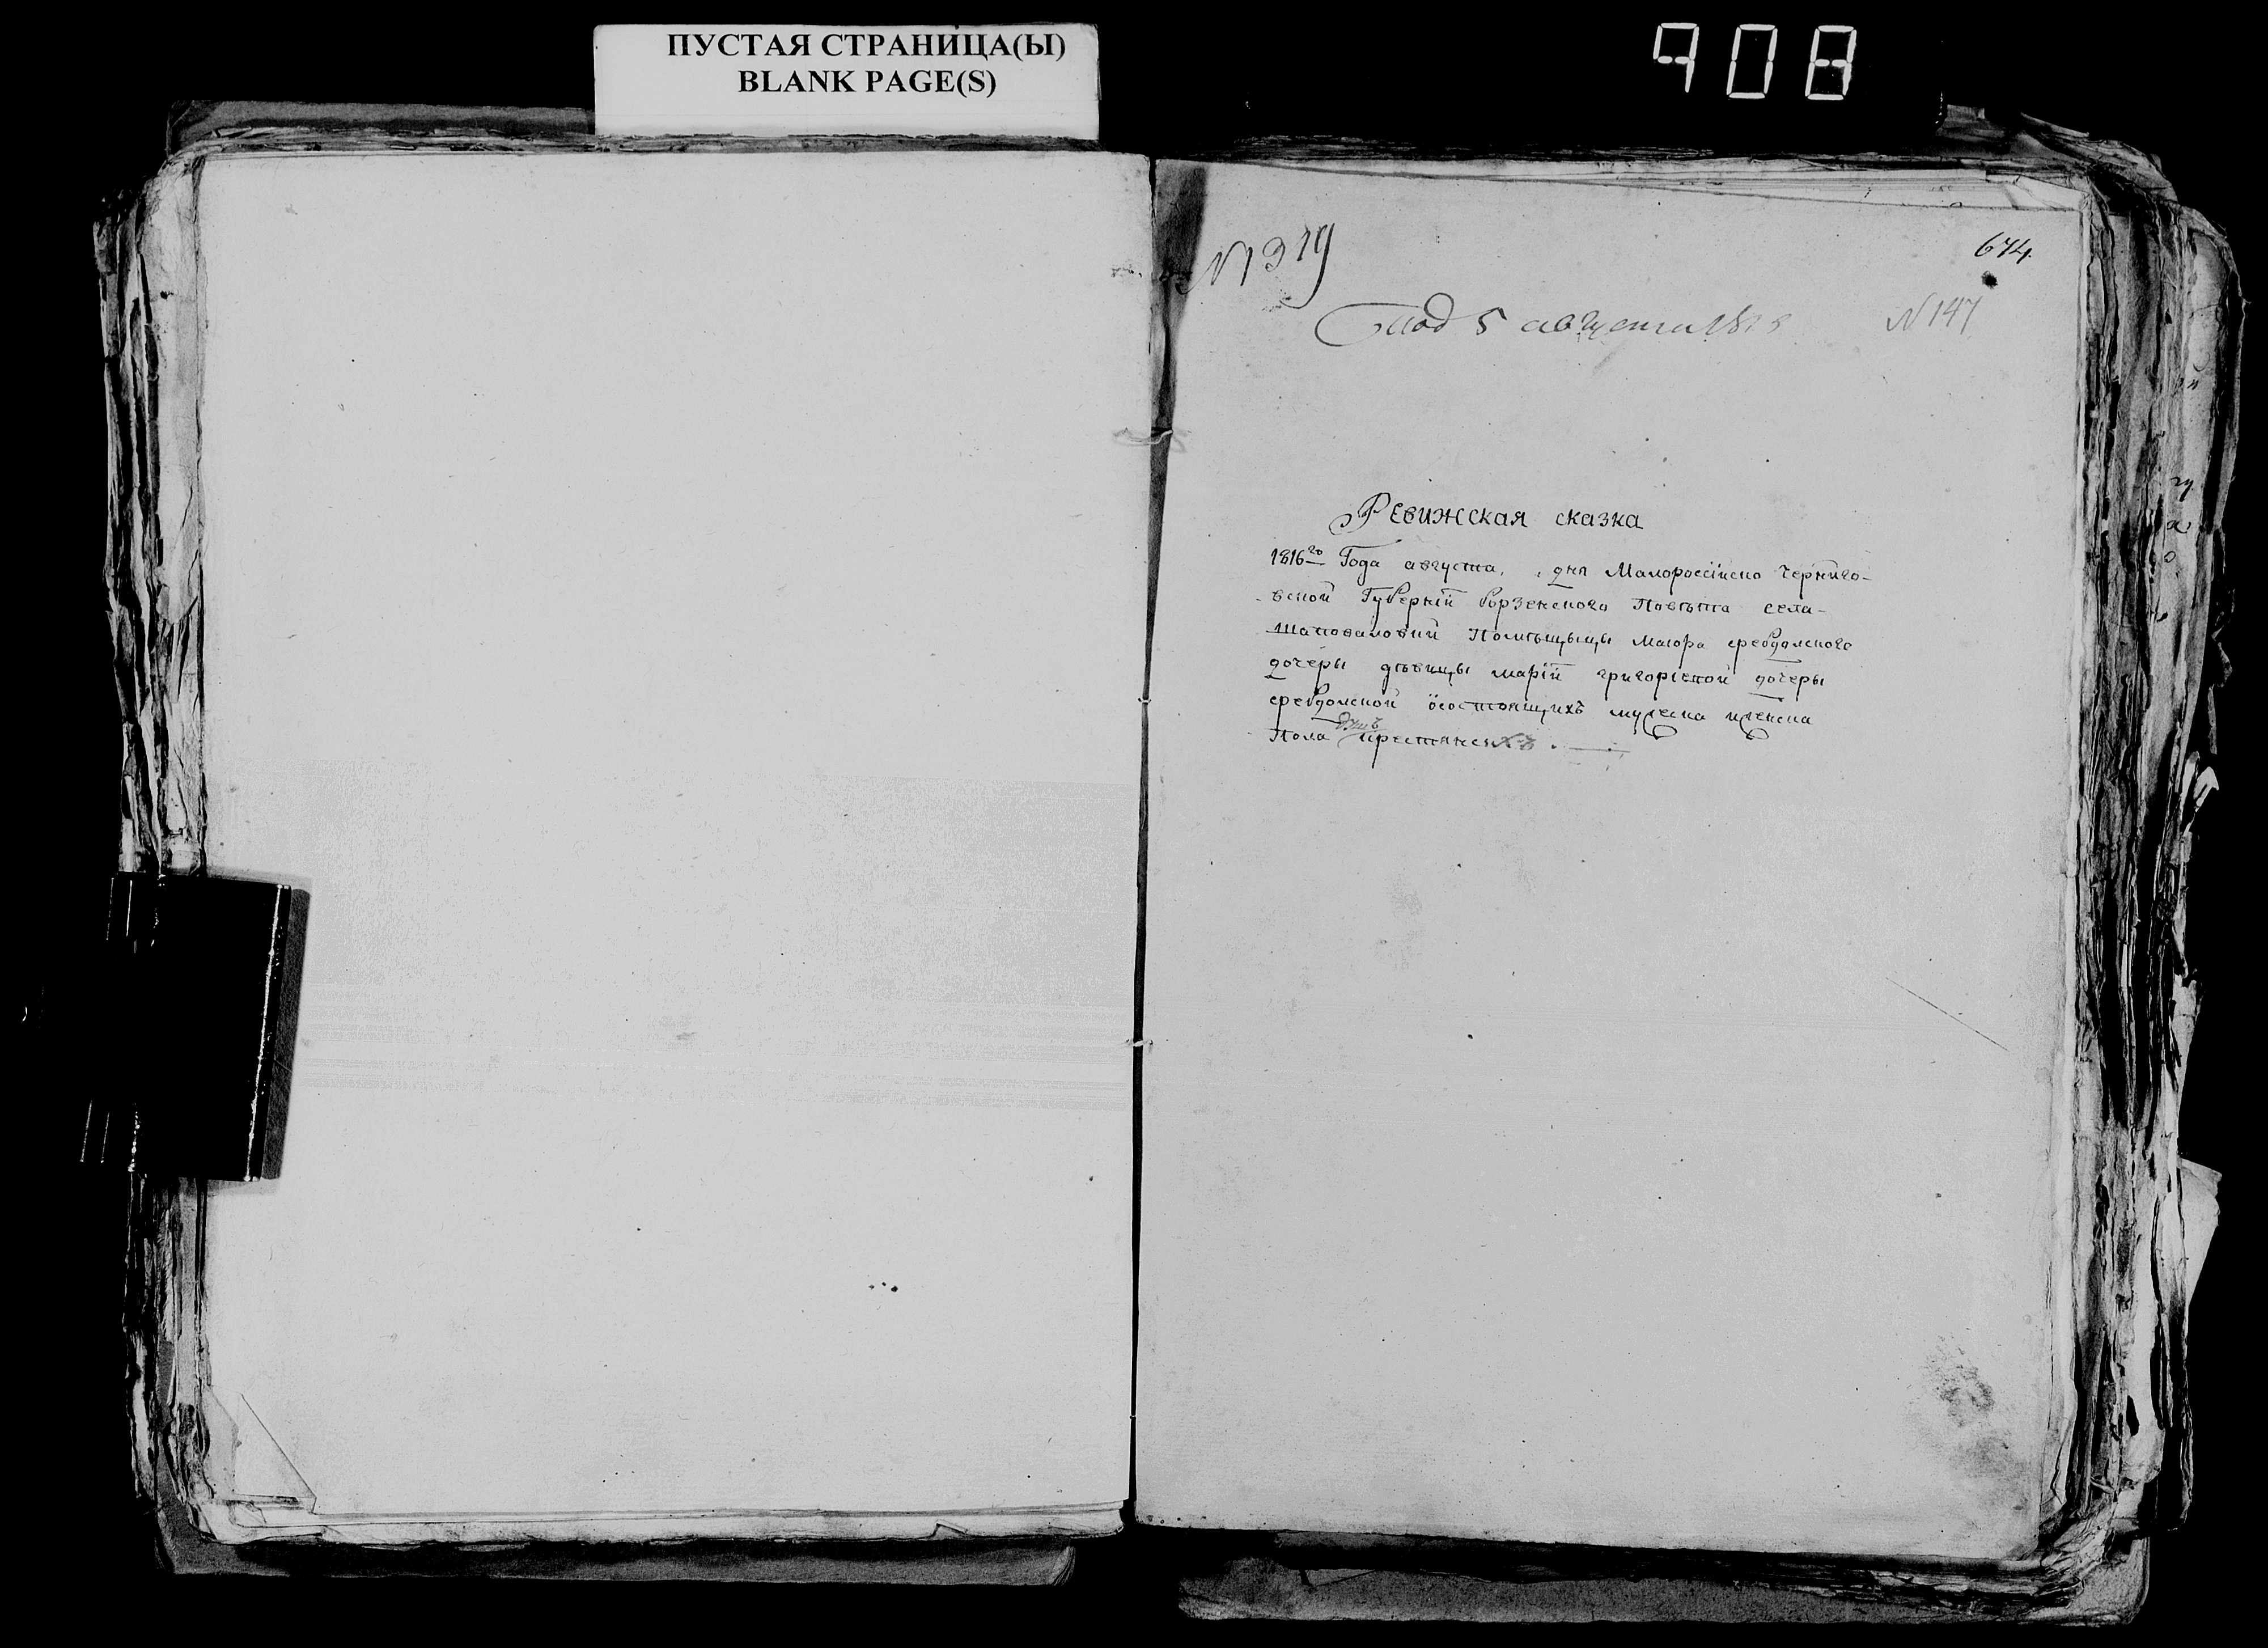 ПУСТАЯ СТРАНИЦА(Ы)
BLANK PAGE(S)
908
N 1319
674.
Под 5 августа 1816
N 147
Ревижская сказка
1816го Года августа, дня Малоросєійско Черниго-
вской Губерніи борзенского Повѣта села-
Шаповаловки Помѣщыцы Маюра сребдолского
дочеры дѣвицы маріи григоріевой дочеры
сребдолской ѡсостоящихъ мужеска иженска
душъ
Пола крестянехъ.